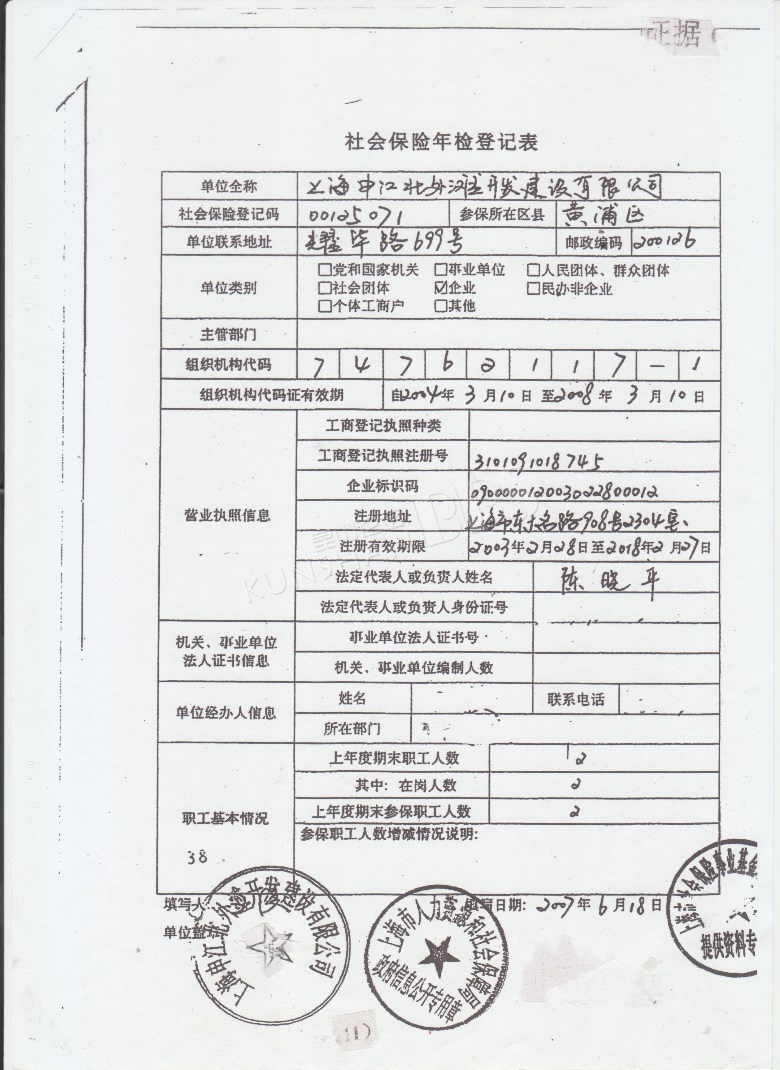 证据
社会保险年检登记表
单位全称 上海申江北外滩开发建设有限公司
社会保险登记码 00125071 参保所在区县 黄浦区
单位联系地址 耀华路699号 邮政编码 200126
单位类别
□党和国家机关 □事业单位 □人民团体、群众团体
□社会团体 ☑企业 □民办非企业
□个体工商户 □其他
主管部门
组织机构代码 7 4 7 6 2 1 1 7 - 1
组织机构代码证有效期 自2004年 3 月 10 日 至2008年 3 月 10 日
营业执照信息
工商登记执照种类
工商登记执照注册号 3101091018745
企业标识码 090000012003022800012
注册地址 上海市东大名路908号2304室
注册有效期限 2003年2月28日至2018年2月27日
法定代表人或负责人姓名 陈晓平
法定代表人或负责人身份证号
机关、事业单位
法人证书信息
事业单位法人证书号
机关、事业单位编制人数
单位经办人信息
姓名 联系电话
所在部门
职工基本情况
38
上年度期末职工人数 2
其中：在岗人数 2
上年度期末参保职工人数 2
参保职工人数增减情况说明：
填写人 填写日期：2007年 6 月 18 日
单位盖
上海申江北外滩开发建设有限公司
上海市人力资源和社会保障局
政府信息公开专用章
社会保险事业基金
提供资料专
(1)